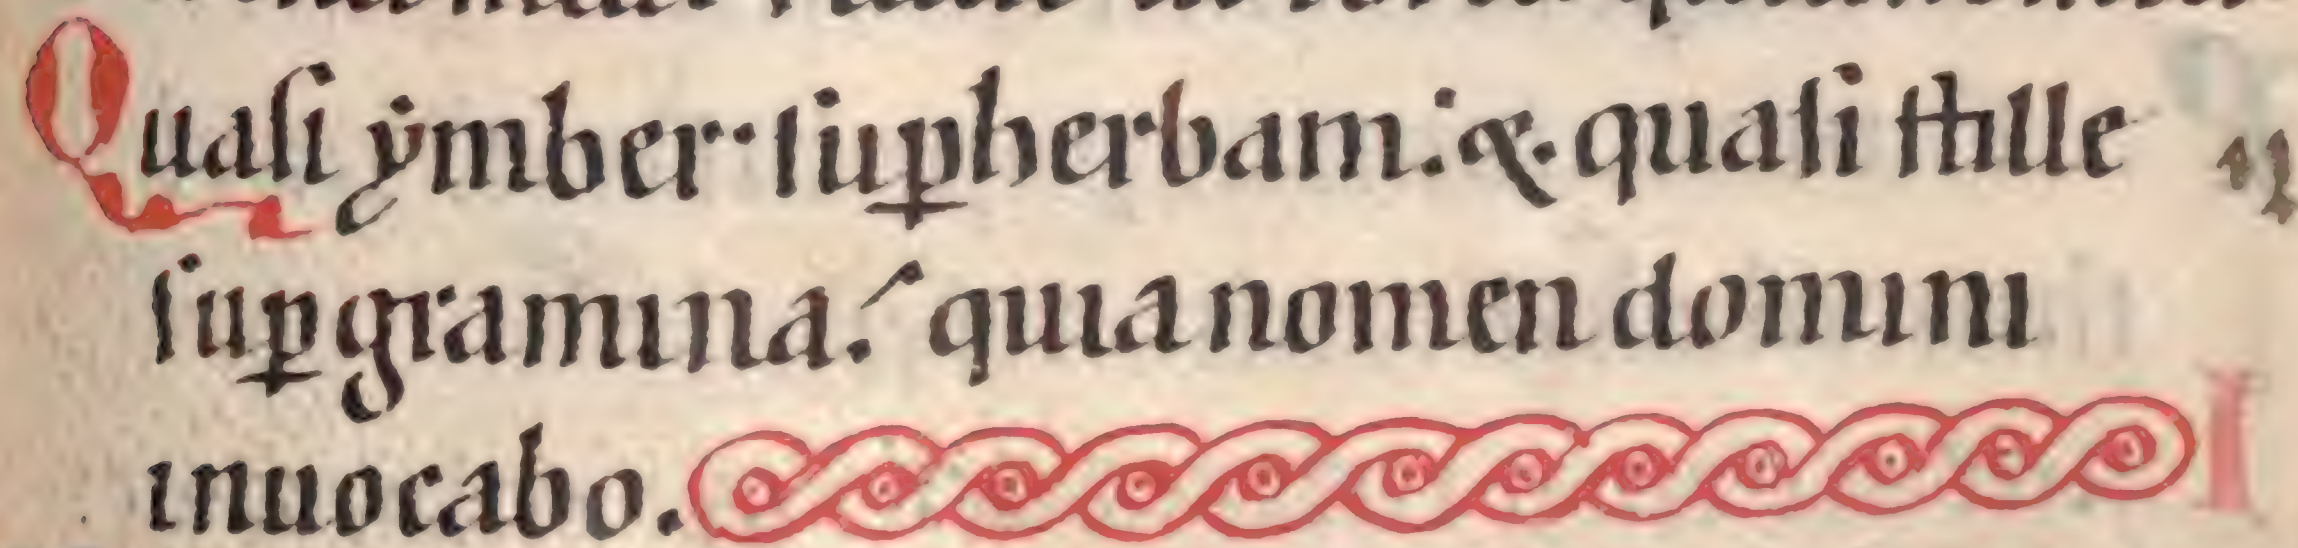 Quaſi ẏmber· ſuꝑherbam: &· quaſi ſtille
ſuꝑ gramına. quıa nomen domını
ınuocabo.